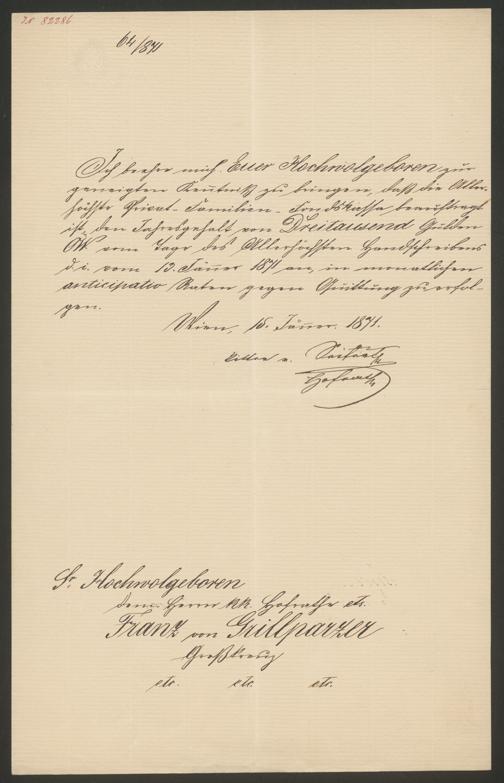 IN 82286
64/871
Ich beehre mich Euer Hochwolgeboren zur
geneigten Kenntniß zu bringen, daß die Aller-
höchste Privat- Familien- Fondskassa beauftragt
ist, den Jahresgehalt von Dreitausend Gulden
ÖW vom Tage des Allerhöchsten Handschreibens
d. i. vom 13. Jänner 1871 an, in monatlichen
anticipativ Raten gegen Quittung zu erfol-
gen.
Wien, 15. Jänner 1871.
Hofrath
Sr Hochwolgeboren
dem Herrn kk. Hofrathe etc.
Franz von Grillparzer
Großkreuz
etc. etc. etc.